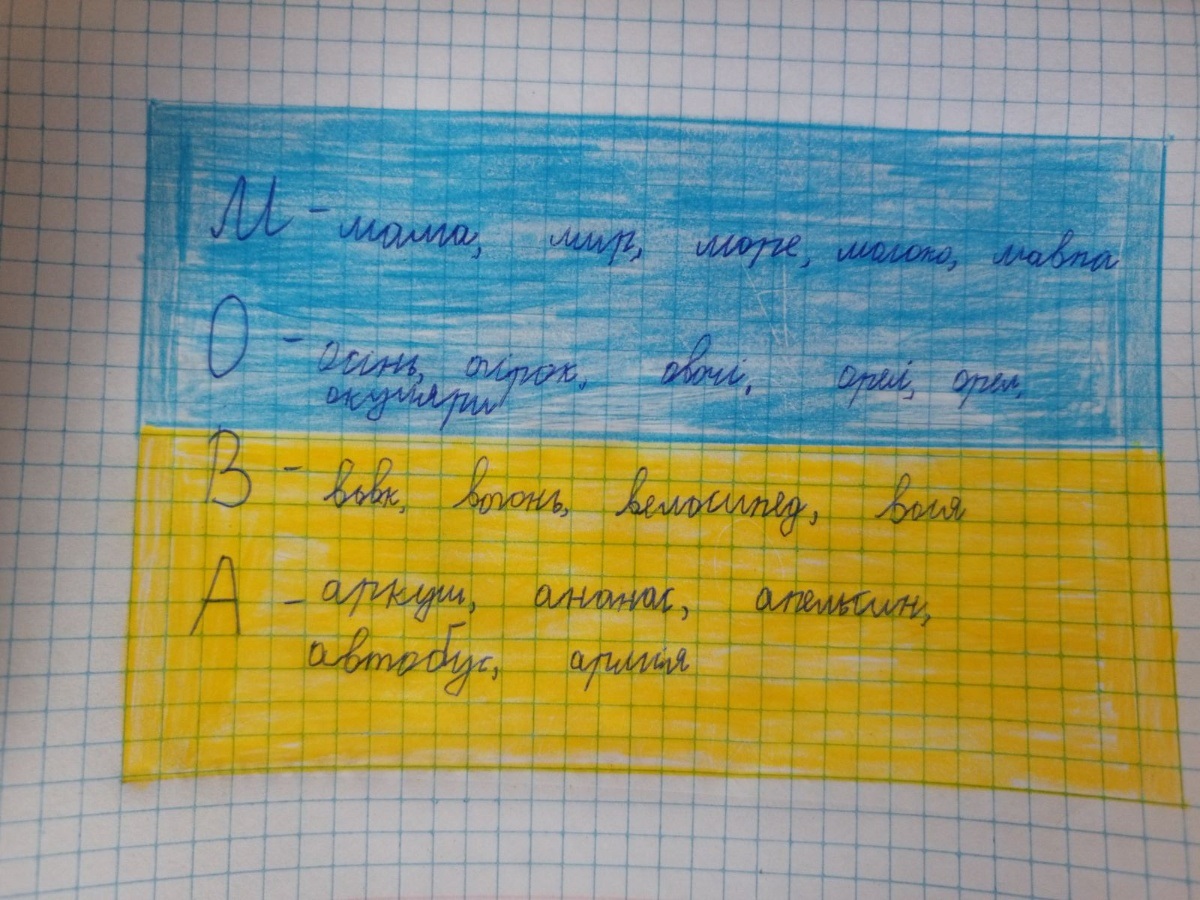 М - мама, мир, море, молоко, мавпа
О - осінь, огірок, овочі, орел,
окуляри
В - вовк, вогонь, велосипед, воля
А - аркуш, ананас, апельсин,
автобус, армія